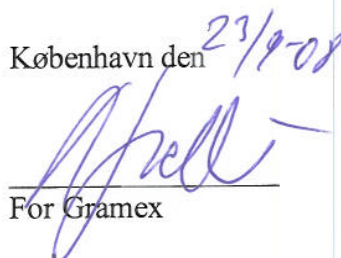 København den 23/9-08
For Gramex